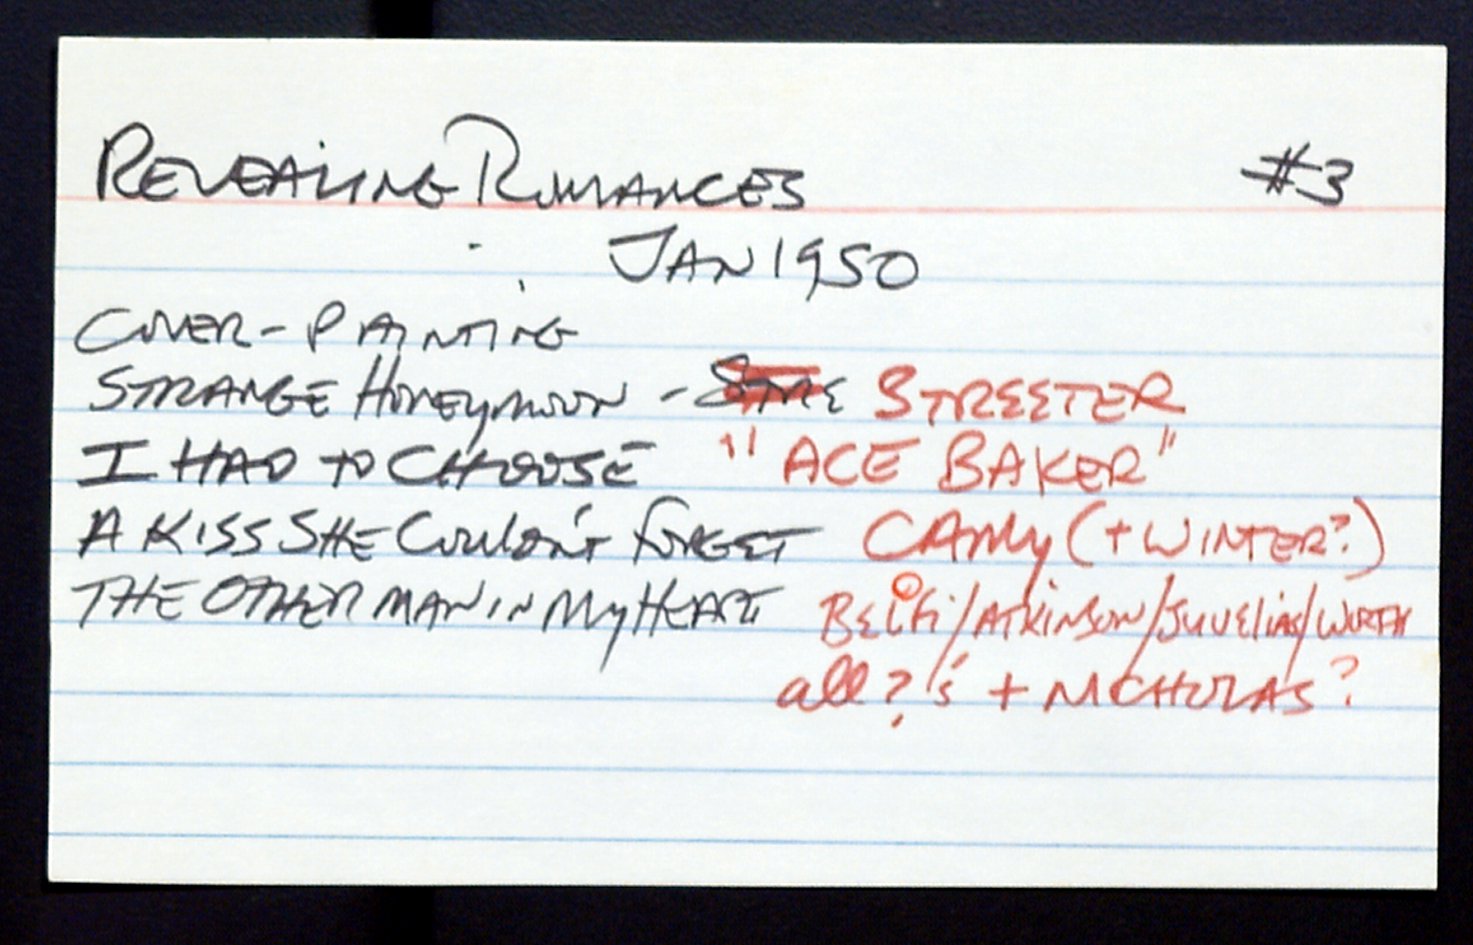 REVEALING ROMANCES #3
JAN 1950
COVER - PAINTING
STRANGE HONEYMOON - STREETER
I HAD TO CHOOSE "ACE BAKER"
A KISS SHE COULDN'T FORGET CAMY (+ WINTER?)
THE OTHER MAN IN MY HEART BELFI/ATKINSON/JUVELIAS/WIRTH
all ?'s + NICHOLAS?